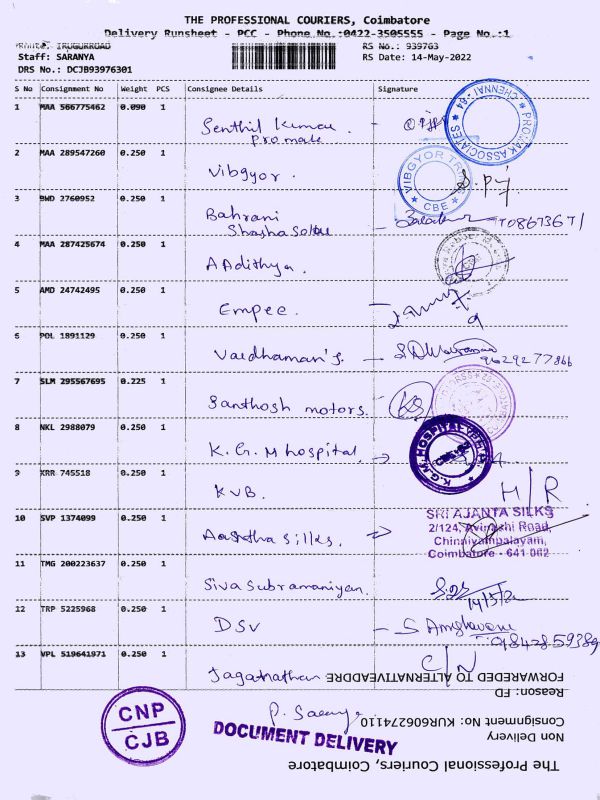 THE PROFESSIONAL COURIERS, Coimbatore
Delivery Runsheet - PCC - Phone No.:0422-3505555 - Page No.:1
Route: IRUGURROAD
RS No.: 939763
Staff: SARANYA
RS Date: 14-May-2022
DRS No.: DCJB93976301
S No Consignment No Weight PCS Consignee Details Signature
1 MAA 566775462 0.090 1 Senthil Kumar
Promak
PROMAK ASSOCIATES CHENNAI - 64
2 MAA 289547260 0.250 1 Vibgyor.
VIBGYOR CBE
3 BWD 2760952 0.250 1 Bahrani
4 MAA 287425674 0.250 1 AAdithya.
5 AMD 24742495 0.250 1 Empee.
6 POL 1891129 0.250 1 Vardhaman's.
9629277866
7 SLM 295567695 0.225 1 Santhosh motors.
8 NKL 2988079 0.250 1 K.G.M hospital.
K.G.M. HOSPITAL
9 KRR 745518 0.250 1 KVB.
H/R
10 SVP 1374099 0.250 1 Aastha silks.
SRI AJANTA SILKS
2/124, Avinashi Road,
Chinniyampalayam,
Coimbatore - 641 062
11 TMG 200223637 0.250 1 Siva Subramaniyan.
14/5/22
12 TRP 5225968 0.250 1 DSV
9842859389
13 VPL 519641971 0.250 1 Jaganathan
C/N
FORWAREDED TO ALTERNATIVEADDRE
Reason: FD
Consignment No: KUR606274110
Non Delivery
The Professional Couriers, Coimbatore
CNP
CJB
DOCUMENT DELIVERY